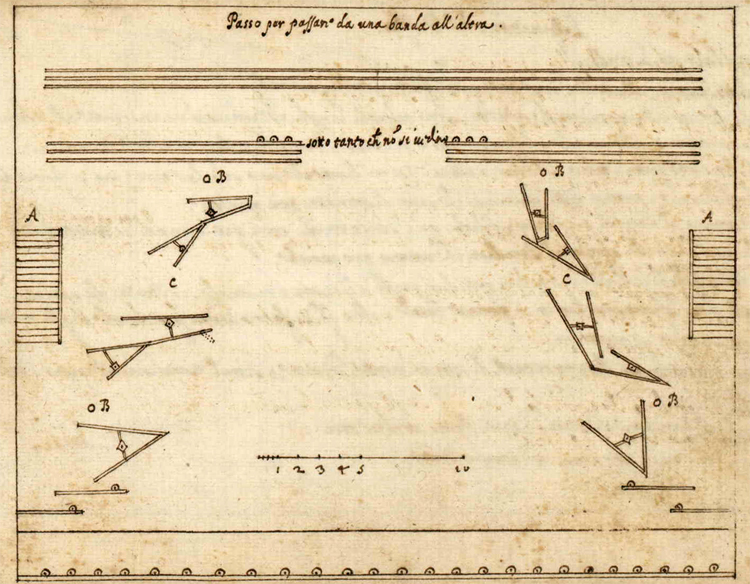 Passo per passar da una banda all'altra.
sotto tanto ch no si
B
B
A
A
C
C
B
B
1 2 3 4 5 10